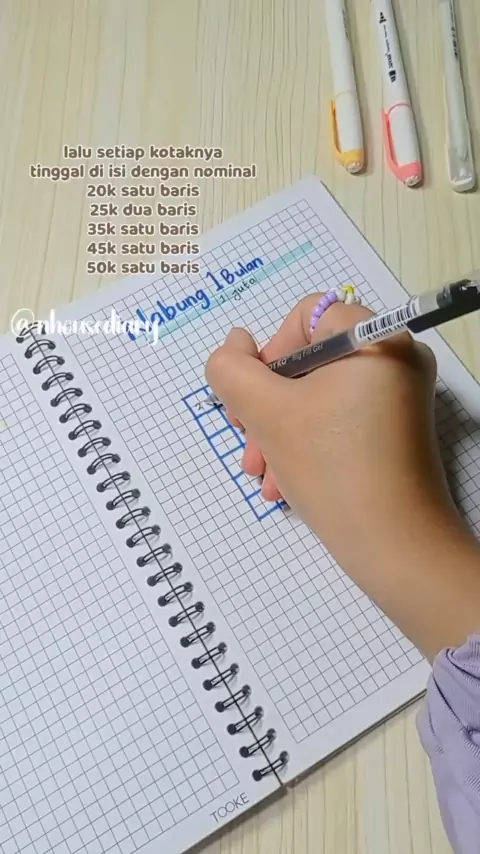 lalu setiap kotaknya
tinggal di isi dengan nominal
20k satu baris
25k dua baris
35k satu baris
45k satu baris
50k satu baris
Nabung 1 Bulan
1 juta
@nhousediary
Big Fill Gel
TOOKE